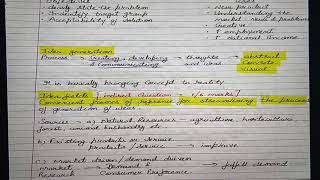 clearly state the problem
Identify target group
Acceptability of solution
New product
Understanding the
market needs & problems
Creative
↑ employment
↑ National Income
Idea generation
Process → Creating, developing → thoughts → abstract
& Communicating and ideas Concrete
Visual
It is basically bringing concept to reality
Idea fields [indirect question 1/2 marks]
Convenient frames of reference for streamlining the process
of generation of ideas
Sources - a) Natural Resources - agriculture, horticulture
forest, animal husbandry etc
b) Existing products or service
products / service → improve
c) Market driven / demand driven
Market Demand & → fulfill demand
Research Consumer Preference